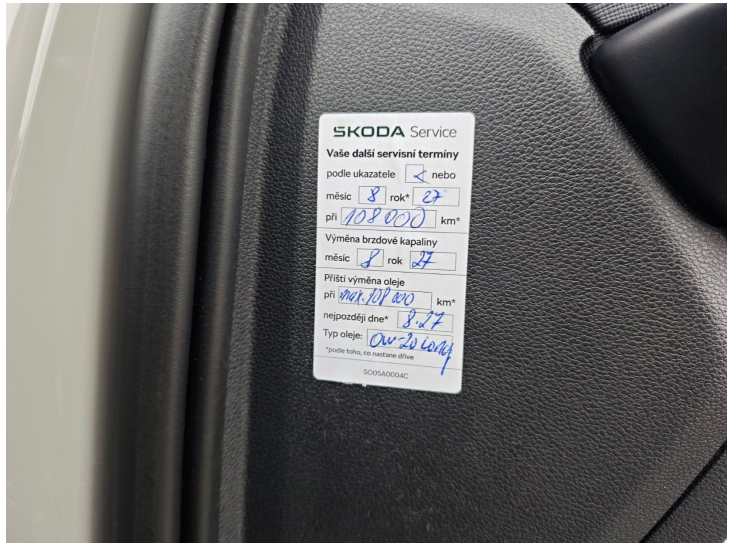 ŠKODA Service
Vaše další servisní termíny
podle ukazatele nebo
měsíc 8 rok* 27
při 108 000 km*
Výměna brzdové kapaliny
měsíc 8 rok 27
Příští výměna oleje
při max. 108 000 km*
nejpozději dne* 8.27
Typ oleje: 0w-20 Long
*podle toho, co nastane dříve
5005A0004C